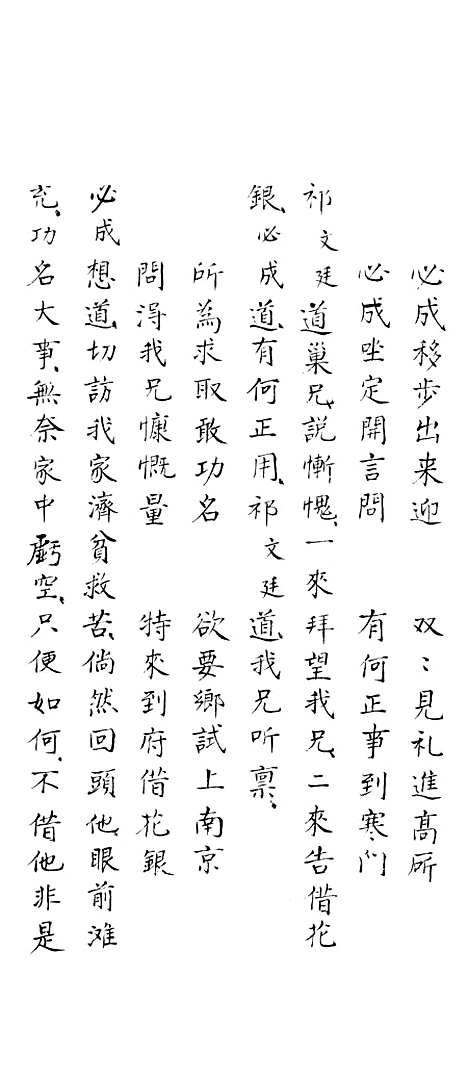 必成移步出来迎　双〻見礼進高所
必成坐定開言問　有何正事到寒门
祁文廷道、巢兄、説慚愧、一來拜望我兄、二來告借花
銀、必成道、有何正用、祁文廷道、我兄听禀、
所為求取敢功名　欲要鄉試上南京
問淂我兄慷慨量　特來到府借花銀
必成想道、切訪我家濟貧救苦、倘然回頭他、眼前滩
充、功名大事、無奈家中虧空、只便如何、不借他非是